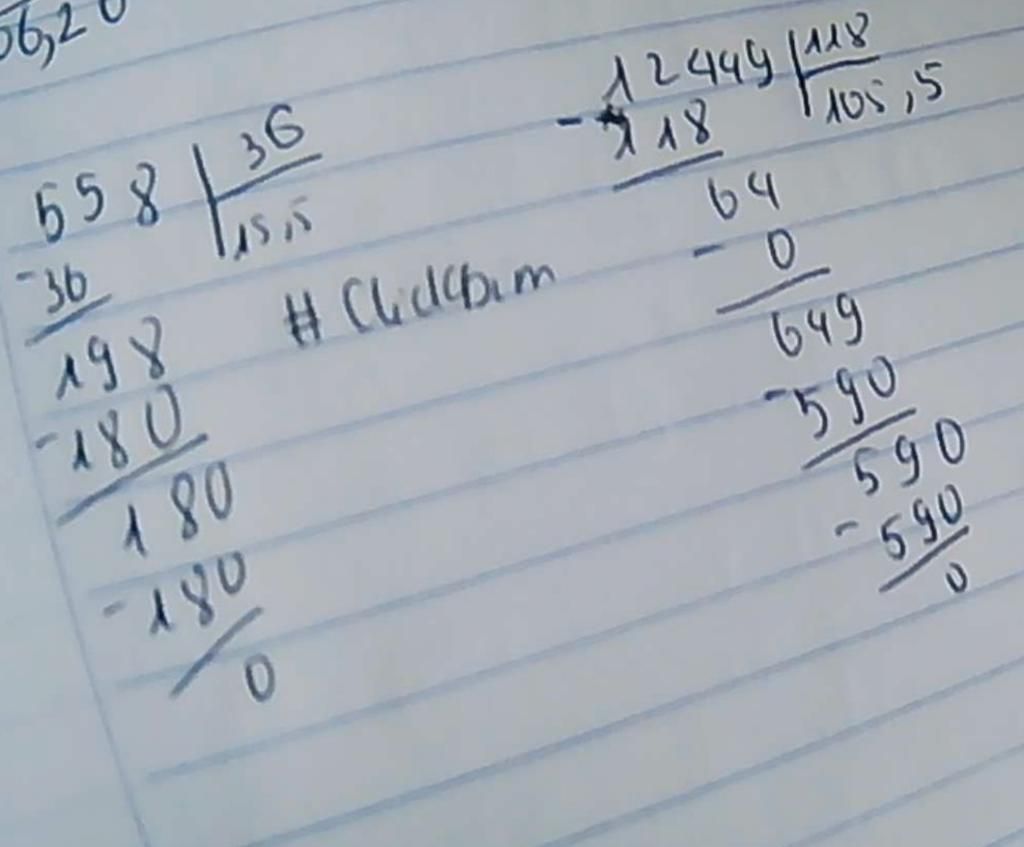 06,20
558 36
15,5
-36
198
-180
180
-180
0
# Clickbim
12449 118
105,5
-118
64
-0
649
-590
590
-590
0